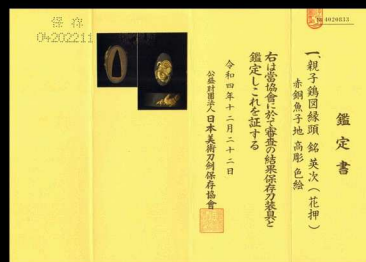 鑑定書
一、親子鶏図縁頭 銘 英次(花押)
赤銅魚子地 高彫 色絵
右は當協會に於て審査の結果保存刀装具と
鑑定しこれを証する
令和四年十二月二十二日
公益財団法人 日本美術刀剣保存協會
保存
04202211
4020833